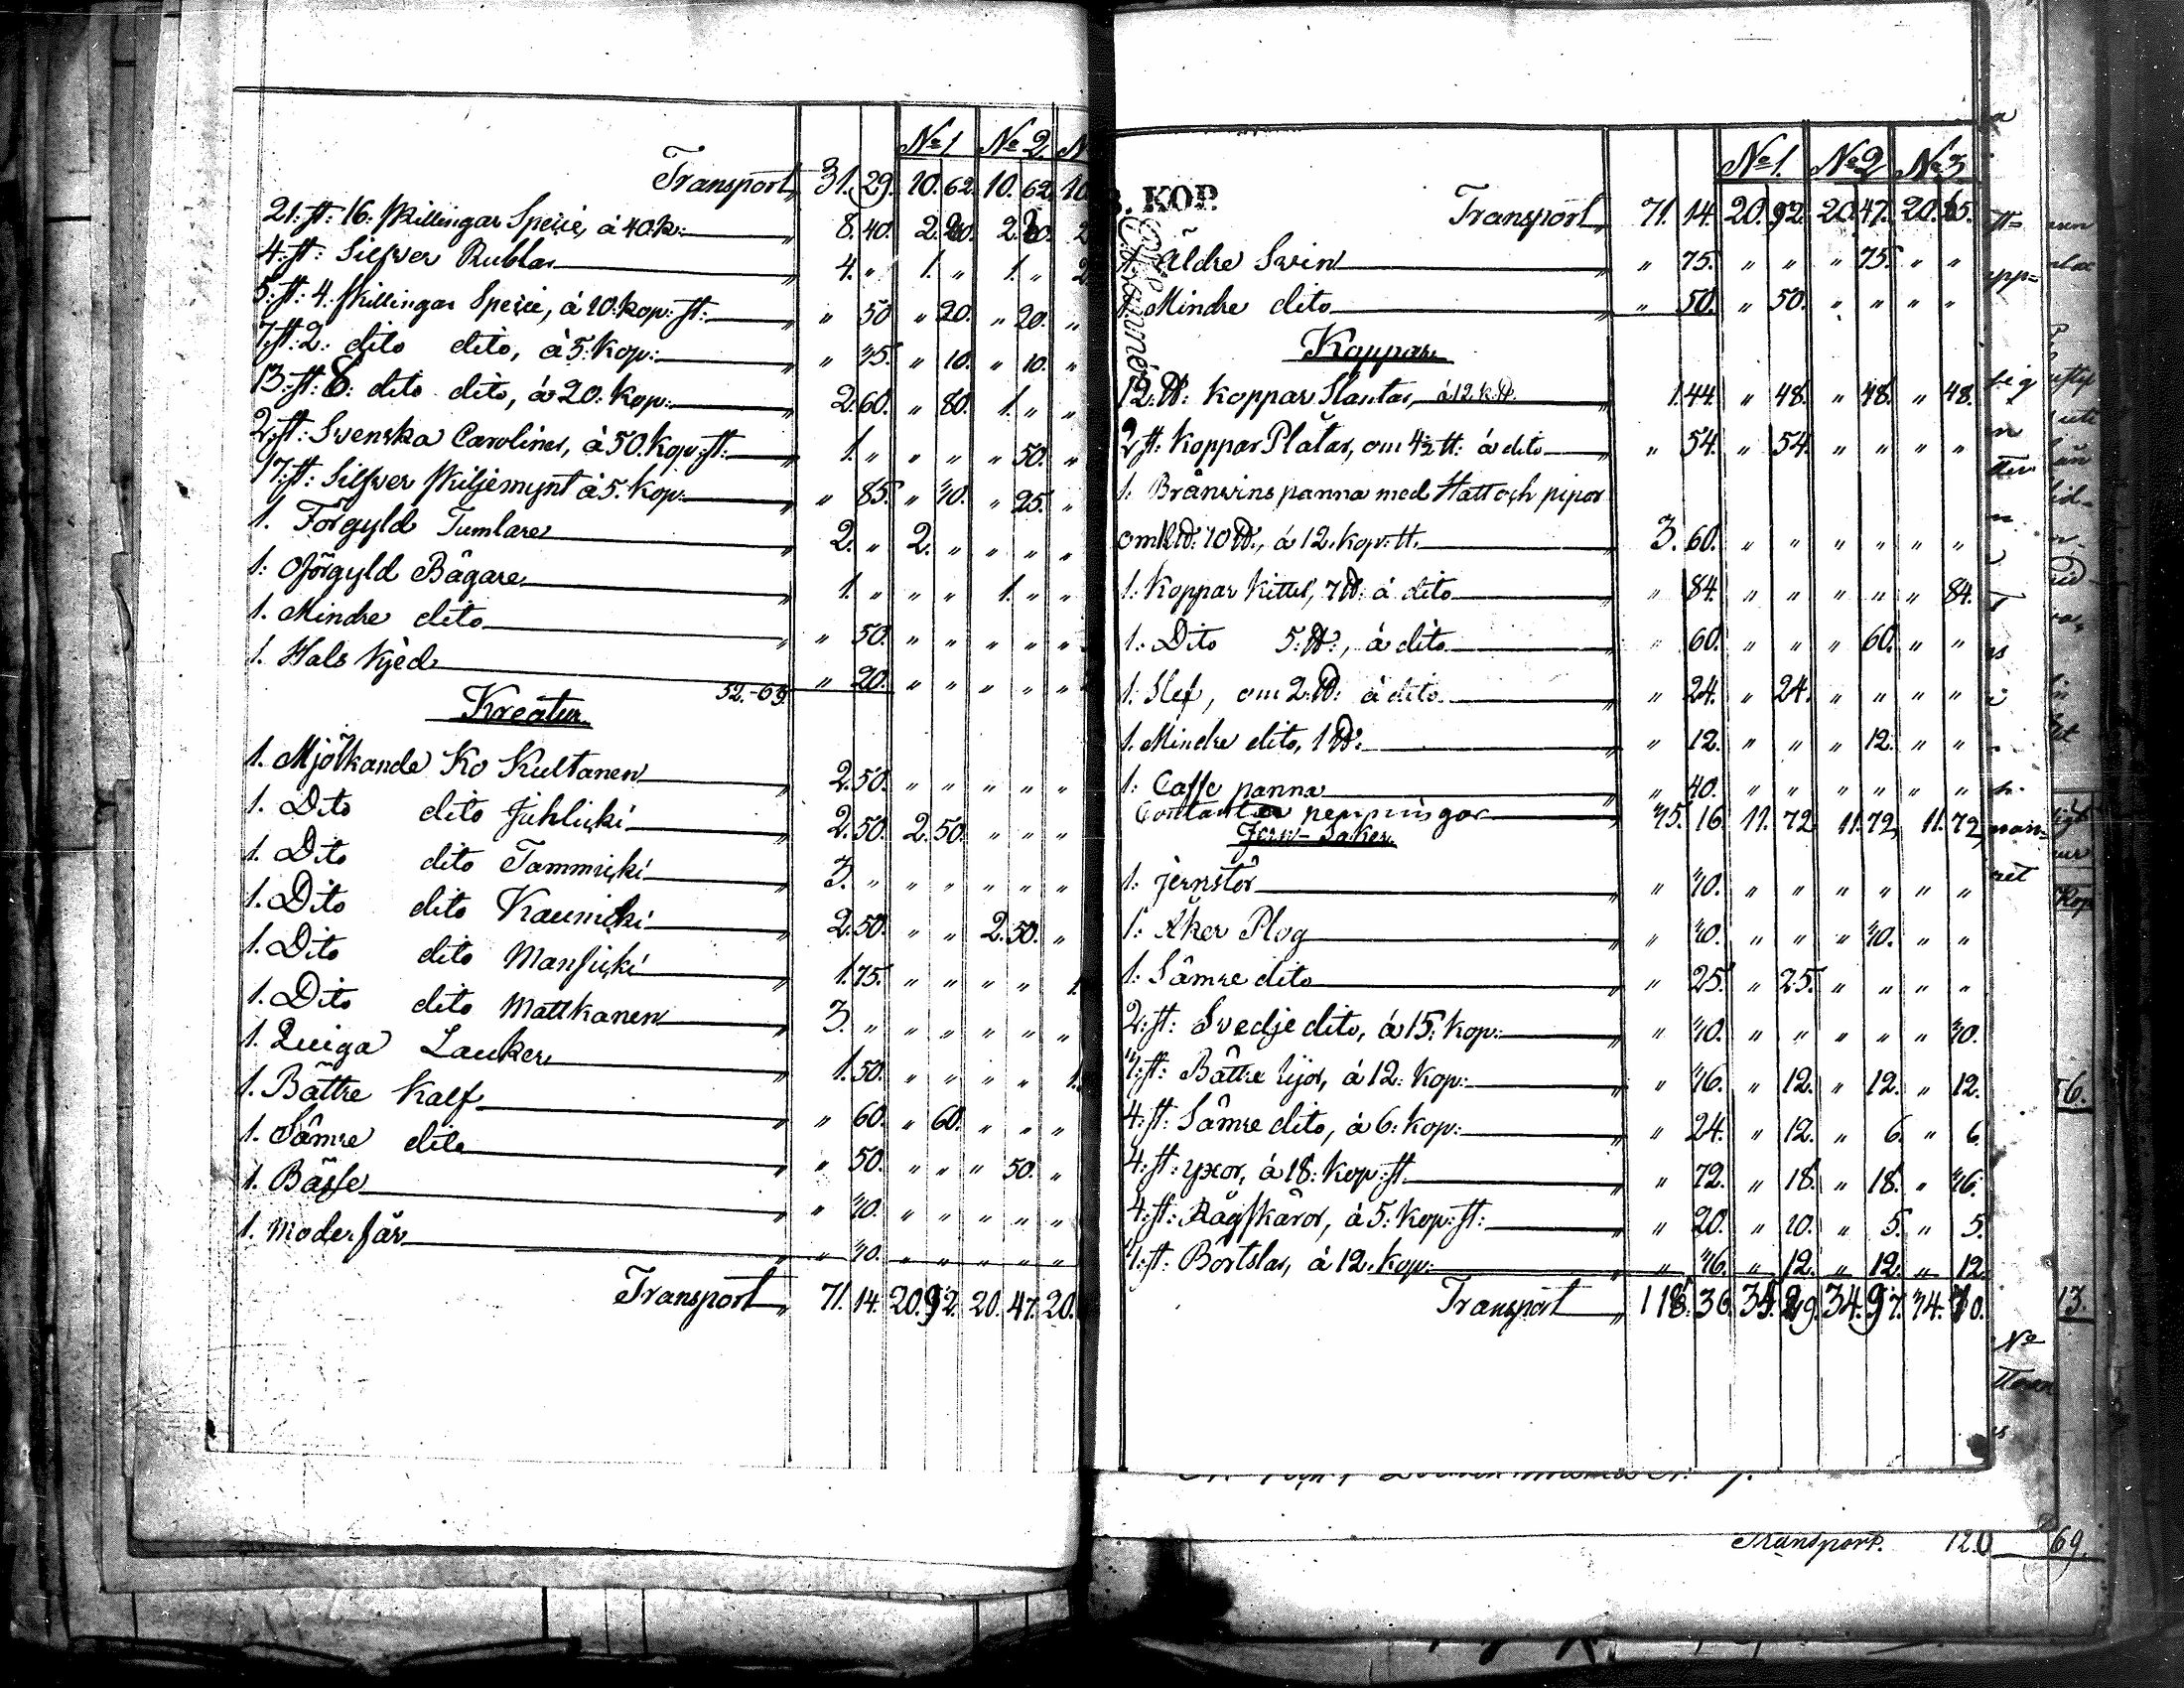 No 1 No 2 N
Transport 31. 29. 10. 62. 10. 62. 10
21: st: 16: skillingar Specie, á 40. k: 8. 40. 2. 80. 2. 80. 2
4: st: Silfwer Rublar 4. " 1. " 1. " 2
5: st: 4. skillingar Specie, á 10: kop: st: " 50 " 20. " 20. "
7: st: 2: dito dito, á 5: kop: " 35. " 10. " 10. "
13: st: 8: dito dito, á 20: kop: 2. 60. " 80. 1. " "
2: st: Swenska Caroliner, á 50. kop: st: 1. " " " " 50. "
17: st: Silfwer skiljemynt á 5. kop: " 85. " 40. " 25. "
1. Förgyld Tumlare 2. " 2. " " " "
1: Oförgyld Bägare 1. " " " 1. " "
1. Mindre dito " 50. " " " " "
1. Hals kjed " 20. " " " " "
52.-69.
Kreatur
1. Mjölkande Ko Kultanen 2. 50. " " " " "
1. Dito dito Juhlicki 2. 50. 2. 50. " " "
1. Dito dito Tammicki 3. " " " " " "
1. Dito dito Kaunicki 2. 50. " " 2. 50. "
1. Dito dito Mansicki 1. 75. " " " " 1.
1. Dito dito Mattkanen 3. " " " " " "
1. Quiga Lauker 1. 50. " " " " 1.
1. Bättre Kalf " 60. " 60. " " "
1. Sämre dito " 50. " " " 50. "
1. Bässe " 40. " " " " "
1. Moderfår " 40. " " " " "
Transport 71. 14. 20. 92. 20. 47. 20.
No 1. No 2 No 3
. KOP.
Transport 71. 14. 20. 92. 20. 47. 20. 65.
1. Äldre Swin " 75. " " " 75. " "
1. Mindre dito " 50. " 50. " " " "
Koppar
12. ℔: Koppar Slantar, á 12. k. ℔. 1. 44. " 48. " 48. " 48.
2 st: Koppar Plåtar, om 4½ ℔: á dito " 54. " 54. " " " "
1. Bränwins panna med Hatt och pipor
om 10 ℔., á 12. kop: ℔. 3. 60. " " " " " "
1. Koppar Kittel, 7 ℔: á dito " 84. " " " " " 84.
1. Dito 5: ℔:, á dito " 60. " " " 60. " "
1: Slef, om 2. ℔: á dito " 24. " 24. " " " "
1. Mindre dito, 1 ℔: " 12. " " " 12. " "
1: Caffe panna " 40. " " " " " "
Contanta penningar 35. 16. 11. 72 11. 72, 11. 72,
Jern-Saker
1: Jernstör " 40. " " " " " "
1: Åker Plog " 40. " " " 40. " "
1: Sämre dito " 25. " 25. " " " "
2: st: Svedje dito, á 15: kop: " 30. " " " " " 30.
3: st: Bättre Lijor, á 12: kop: " 36. " 12. " 12. " 12.
4: st: Sämre dito, á 6: kop: " 24. " 12. " 6. " 6.
4: st: yxor, á 18: kop: st. " 72. " 18. " 18. " 36.
4: st: Rågskäror, á 5: kop: st: " 20. " 10. " 5. " 5.
3: st. Bortslar, á 12. kop: " 36. " 12. " 12. " 12
Transport 118. 36. 34. 97. 34. 70.
Transport. 120 69.